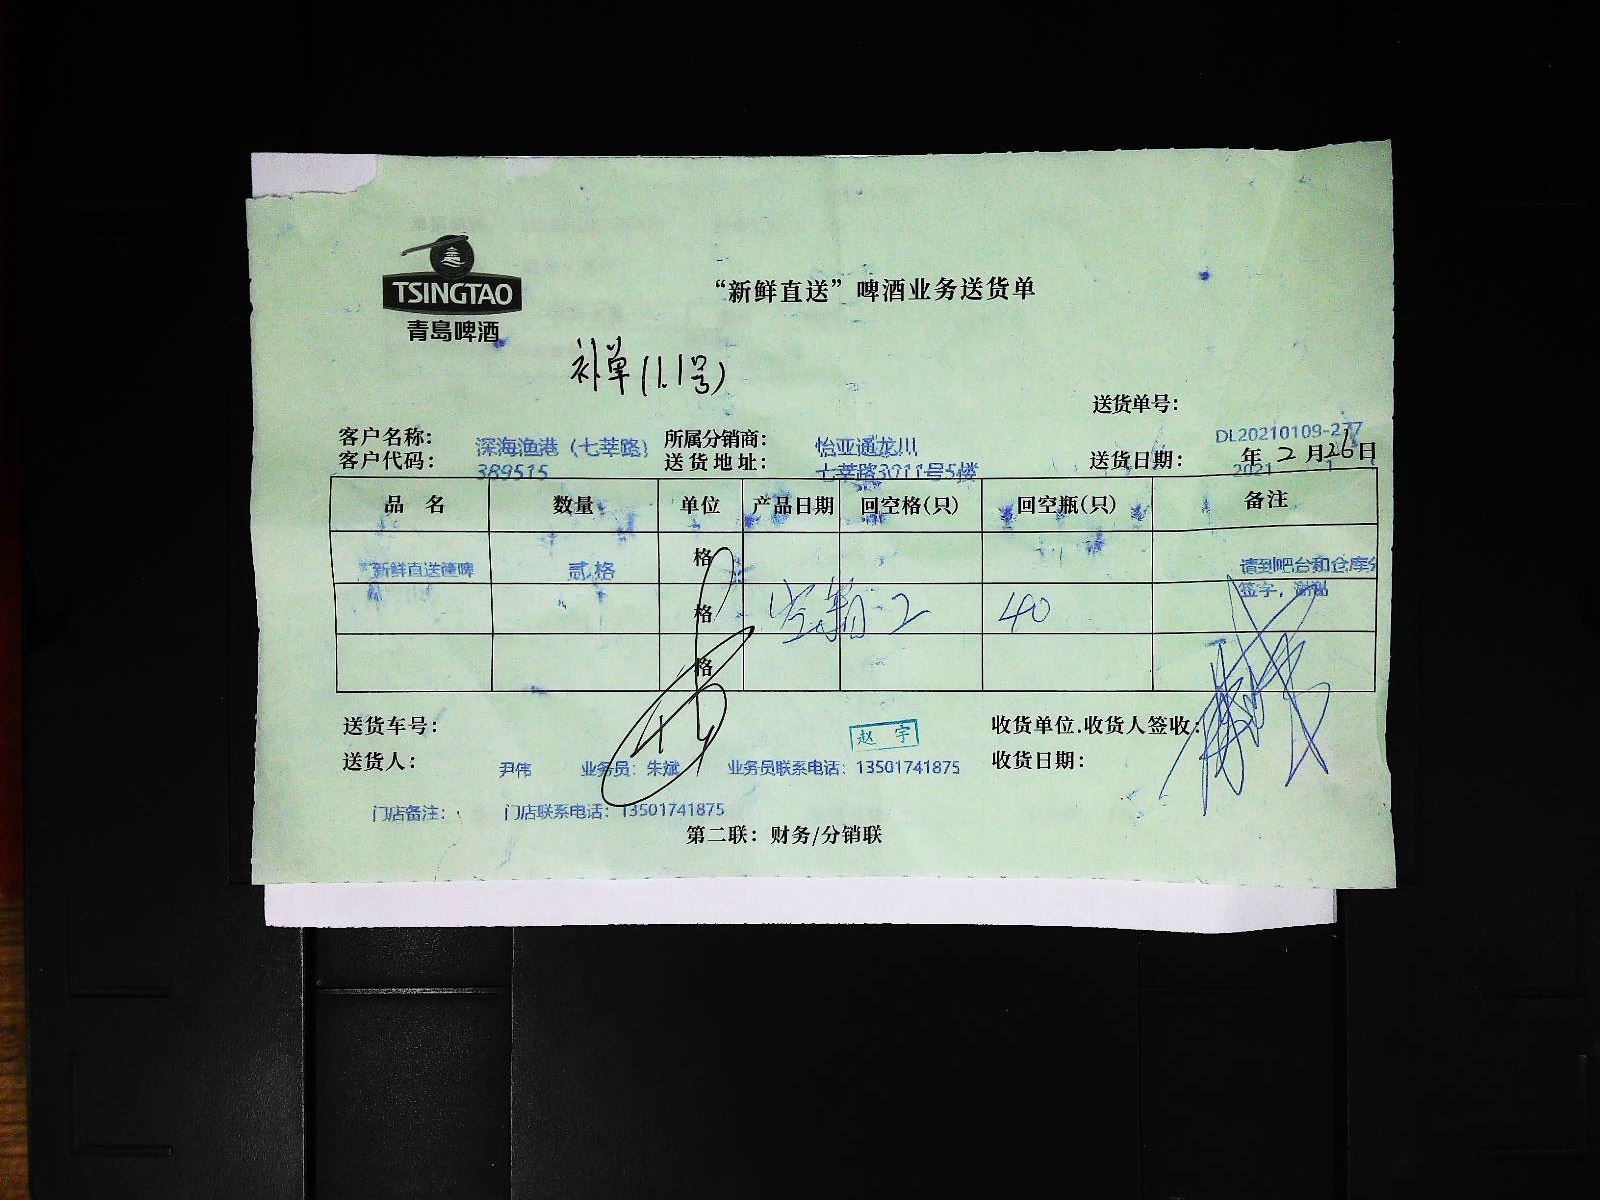 TSINGTAO
青岛啤酒
“新鲜直送”啤酒业务送货单
补单(1.1号)
送货单号：
DL20210109-277
客户名称： 深海渔港（七莘路） 所属分销商： 怡亚通龙川
客户代码： 389515 送货地址： 七莘路3011号5楼 送货日期： 2021 年 2 月 26 日
1
品 名 数量 单位 产品日期 回空格(只) 回空瓶(只) 备注
新鲜直送 贰格 格 请到吧台和仓库
签字，谢谢
格 空箱 2 40
格
送货车号： 收货单位.收货人签收：
赵 宇
送货人： 尹伟 业务员：朱斌 业务员联系电话：13501741875 收货日期：
门店备注： 门店联系电话：13501741875
第二联：财务/分销联